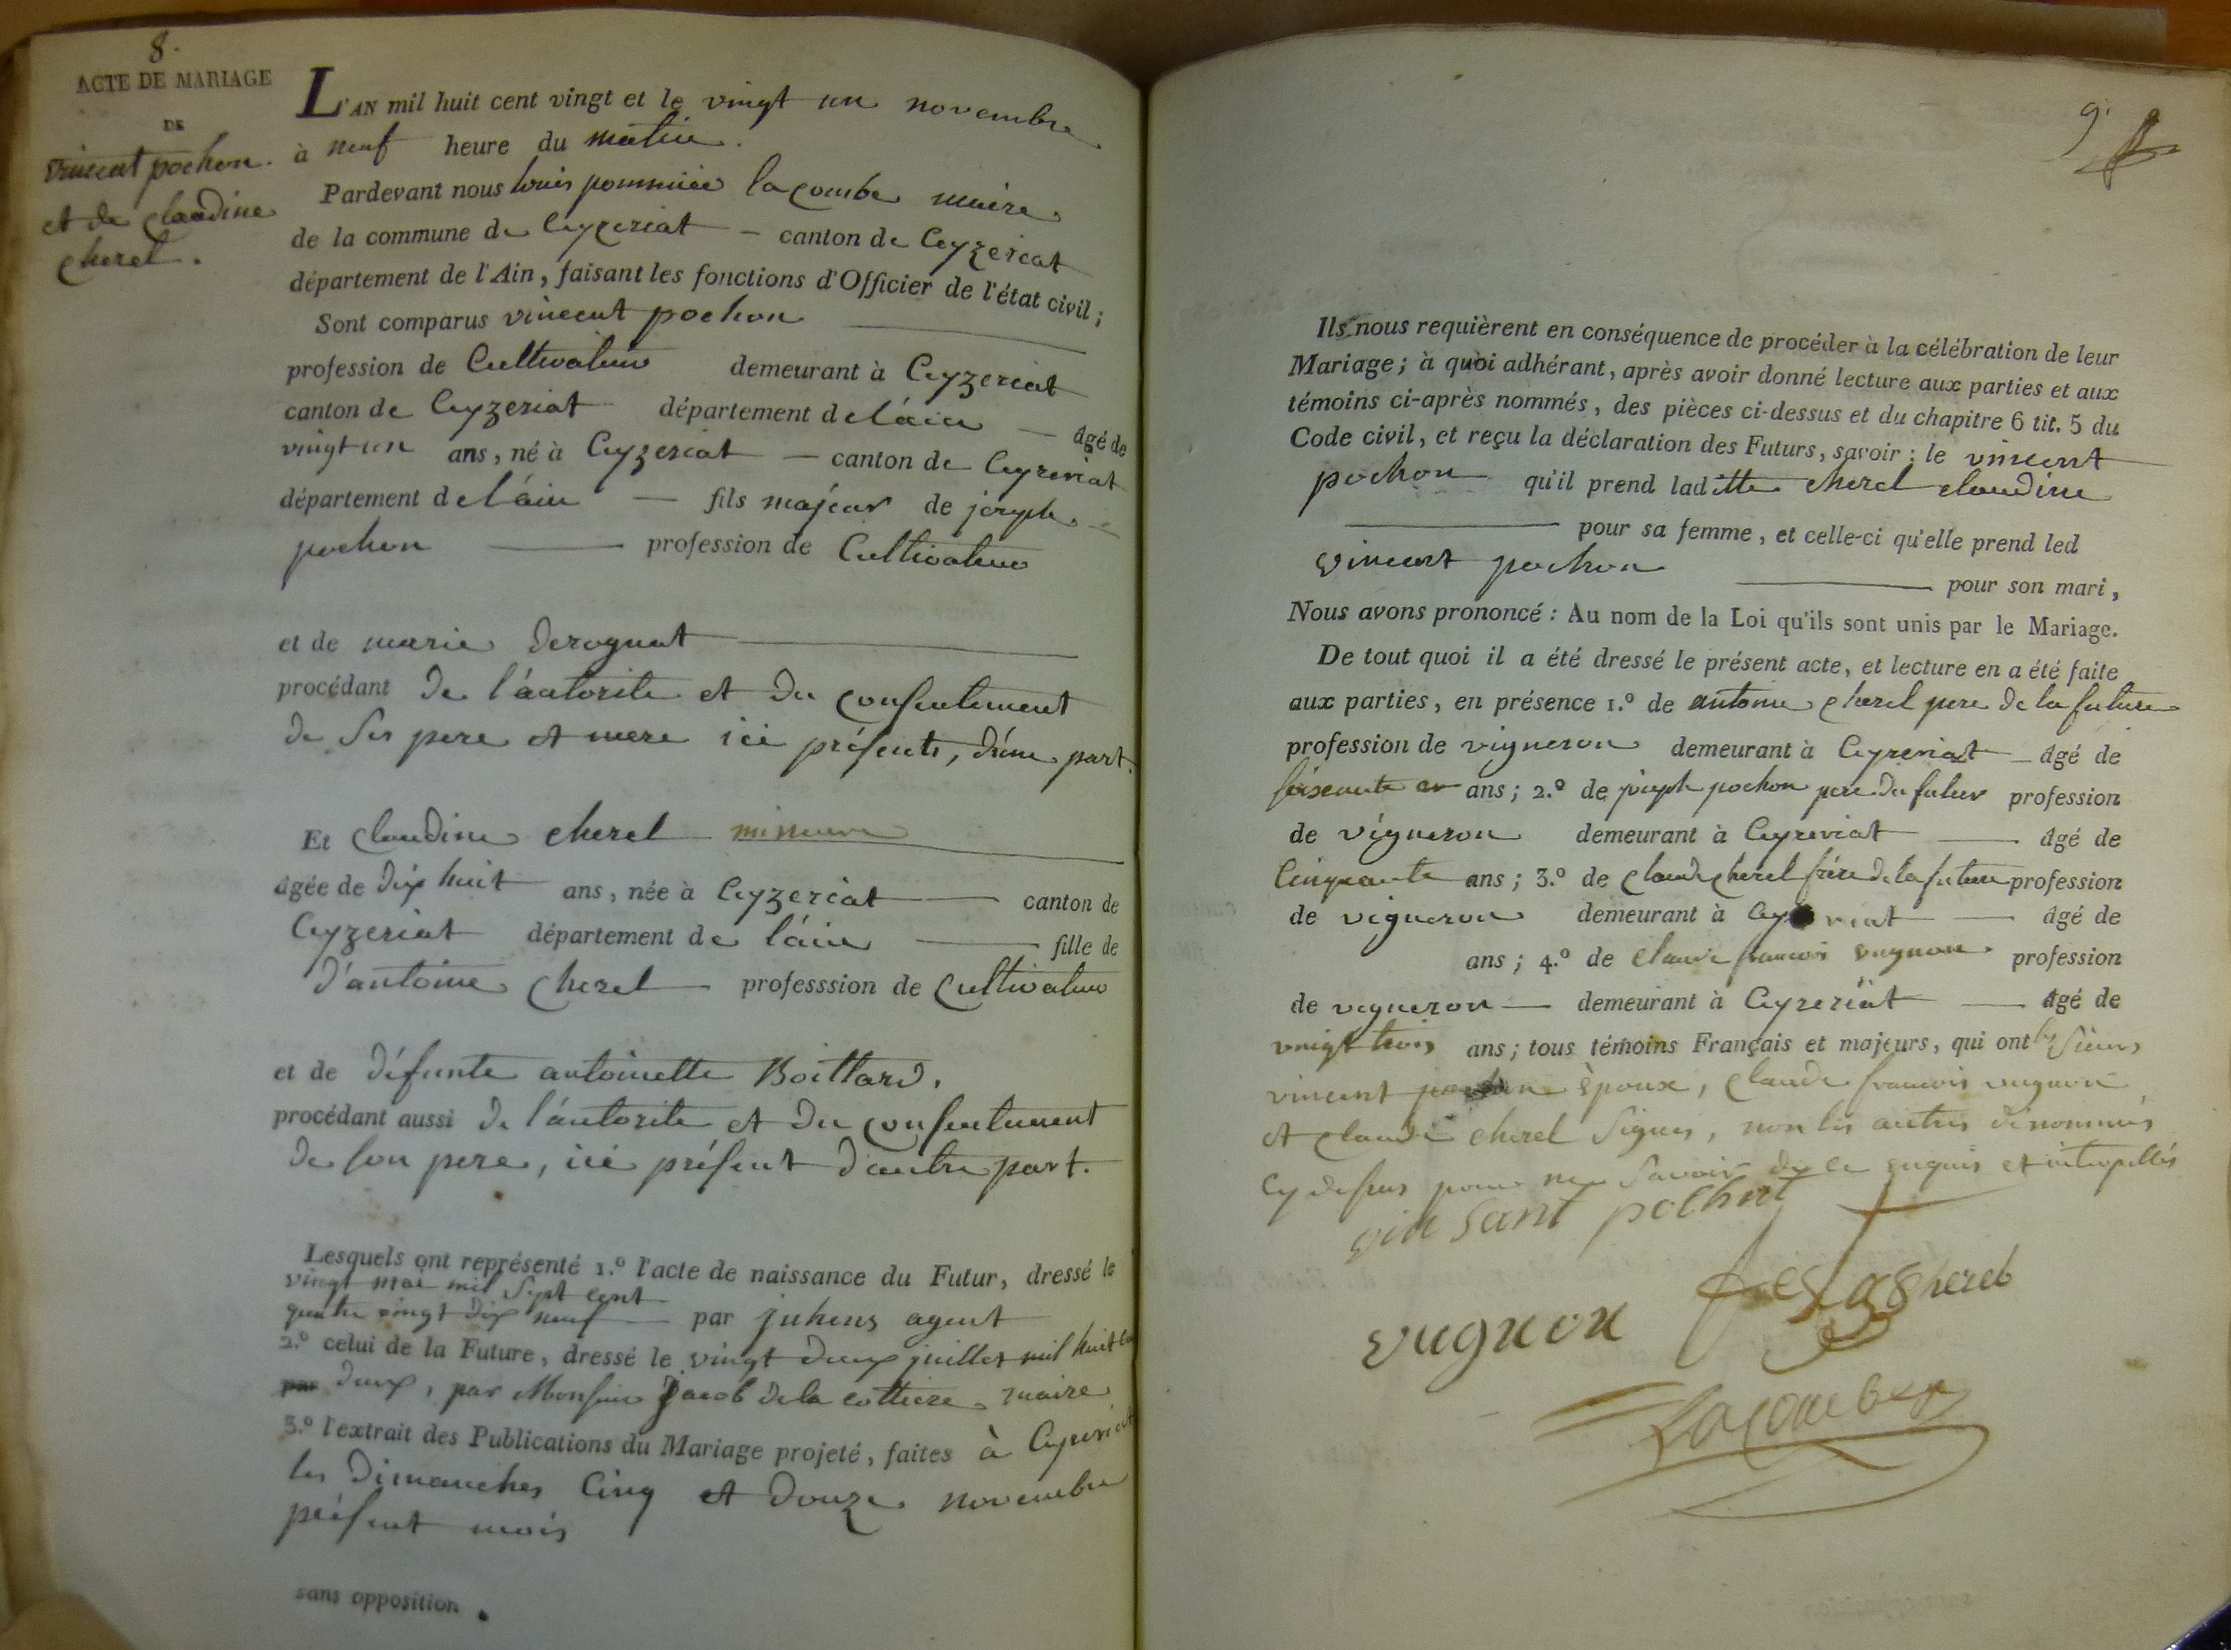 8.
ACTE DE MARIAGE
DE
vincent pochon.
et de claudine
cherel.
L'AN mil huit cent vingt et le vingt un novembre
à neuf heure du matin.
Pardevant nous louis pommiee lacombe maire
de la commune de Ceyzeriat — canton de Ceyzeriat
département de l'Ain, faisant les fonctions d'Officier de l'état civil;
Sont comparus vincent pochon
profession de Cultivateur demeurant à Ceyzeriat
canton de Ceyzeriat département de l'ain — âgé de
vingt un ans, né à Ceyzeriat — canton de Ceyzeriat
département de l'ain — fils majeur de joseph
pochon — profession de Cultivateur
et de marie derognat
procédant de l'autorite et du consentement
de ses pere et mere ici présents, d'une part.
Et claudine cherel mineure
âgée de dix huit ans, née à Ceyzeriat — canton de
Ceyzeriat département de l'ain — fille de
d'antoine cherel — professsion de Cultivateur
et de défunte antoinette Boittard,
procédant aussi de l'autorite et du consentement
de son pere, ici présent d'autre part.
Lesquels ont représenté 1.º l'acte de naissance du Futur, dressé le
vingt mai mil sept cent
quatre vingt dix neuf — par juhens agent
2.º celui de la Future, dressé le vingt deux juillet mil huit cent
deux, par Monsieur Jacob de la cottiere maire
3.º l'extrait des Publications du Mariage projeté, faites à Ceyzeriat
les dimanches Cinq et douze novembre
présent mois
sans opposition.
9.
Ils nous requièrent en conséquence de procéder à la célébration de leur
Mariage; à quoi adhérant, après avoir donné lecture aux parties et aux
témoins ci-après nommés, des pièces ci-dessus et du chapitre 6 tit. 5 du
Code civil, et reçu la déclaration des Futurs, savoir: le vincent
pochon qu'il prend laditte cherel claudine
— pour sa femme, et celle-ci qu'elle prend led
vincent pochon — pour son mari,
Nous avons prononcé: Au nom de la Loi qu'ils sont unis par le Mariage.
De tout quoi il a été dressé le présent acte, et lecture en a été faite
aux parties, en présence 1.º de antoine cherel pere de la future
profession de vigneron demeurant à Ceyzeriat — âgé de
soixante ans; 2.º de joseph pochon pere du futur profession
de vigneron demeurant à Ceyzeriat — âgé de
Cinquante ans; 3.º de claude cherel frère de la future profession
de vigneron demeurant à Ceyzeriat — âgé de
ans; 4.º de claude francois vugnon profession
de vigneron — demeurant à Ceyzeriat — âgé de
vingt trois ans; tous témoins Français et majeurs, qui ont les sieurs
vincent pochon époux, claude francois vugnon
et claude cherel signes, non les autres dénommés
cy dessus pour ne savoir de ce enquis et interpellés
vin sant pochnt
vugnon cherel
Lacombe